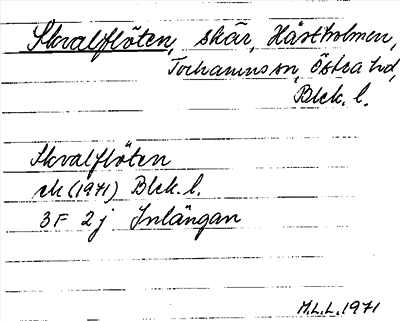 Skvalflöten, skär, Hästholmen,
Torhamns sn, Östra hd,
Blek. l.
Skvalflöten
ek (1971) Blek. l.
3F 2j Inlängan
M.L.L. 1971